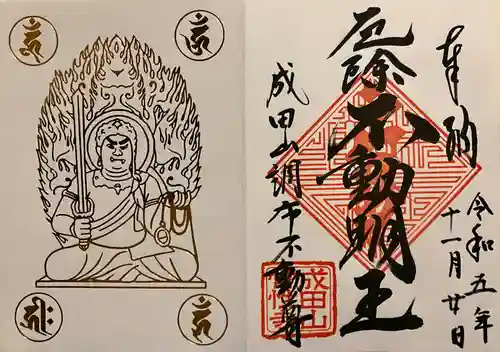 奉納
令和五年
十一月廿日
厄除不動明王
成田山調布不動尊
成田山